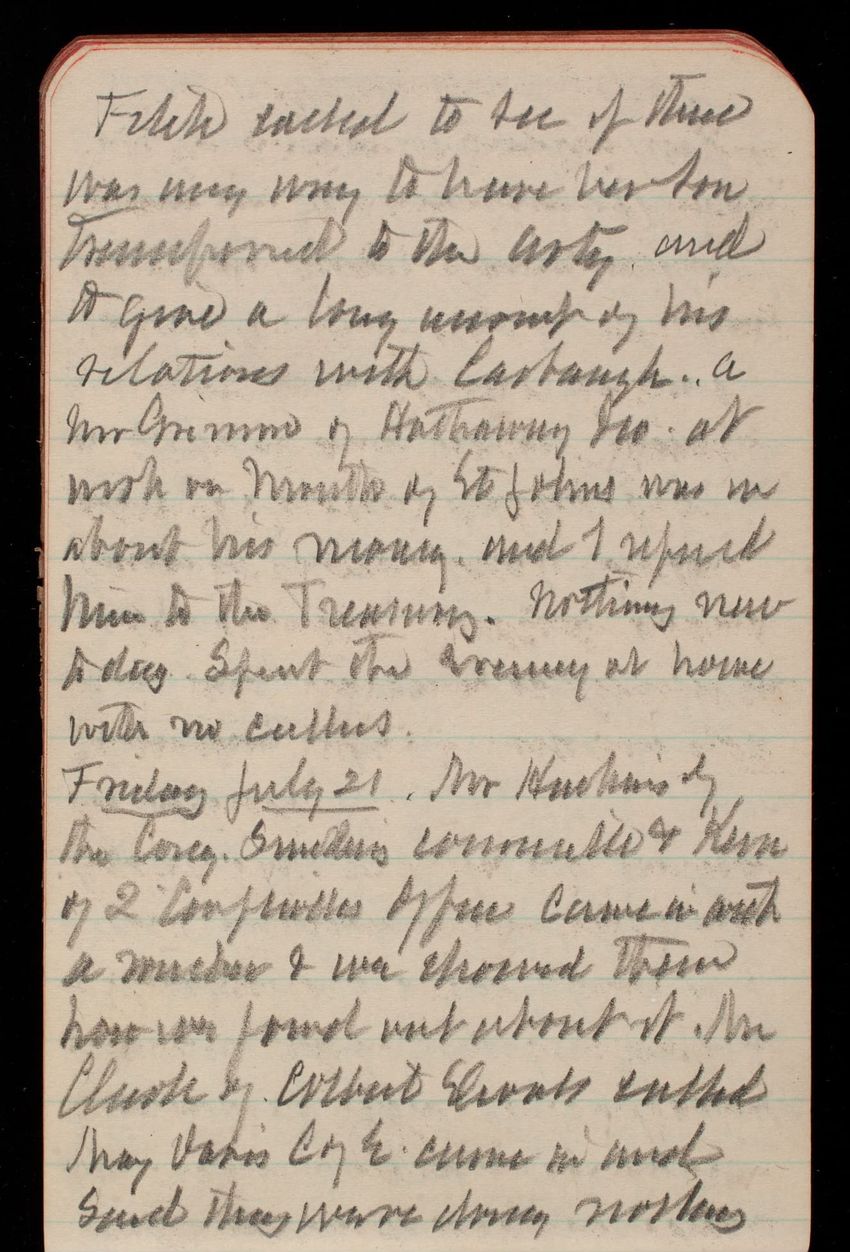 Fitch called to see if there
was any way to have her son
Transferred to the Arty. and
to give a long account of his
relations with Carbaugh. a
Mr of Hathaway &co. at
work on Mouth of St Johns was in
about his money. and I referred
him to the Treasury. Nothing new
to day. Spent the evening at home
with no callers.
Friday July 21. Mr of
the Cong. committee & Kern
of 2 Comptrollers Office came in with
a & we showed them
how we found out about it. Mr
Clark of Colbert Shoals called
Maj Davis C of E. came in and
Said they were doing nothing